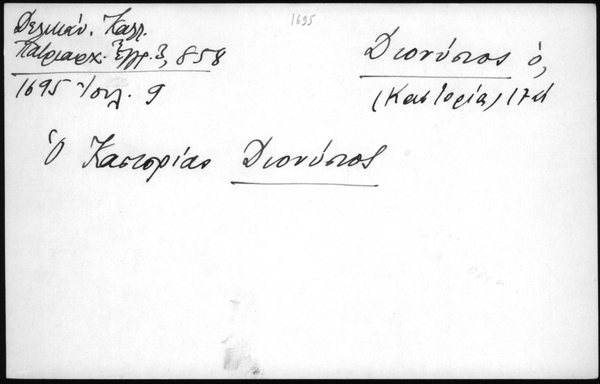 1695
Δελικάν. Καλλ.
Πατριαρχ. Ἔγγρ. 3, 858
1695 Ἰουλ. 9
Διονύσιος ὁ,
(Καστορία) 17
Ὁ Καστορίας Διονύσιος